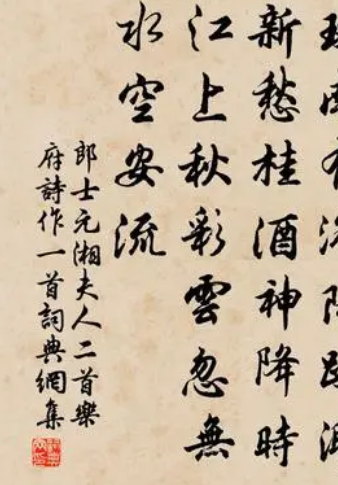 新愁桂酒神降時
江上秋彩雲忽無
水空安流
郎士元湘夫人二首樂
府詩作一首詞典網集